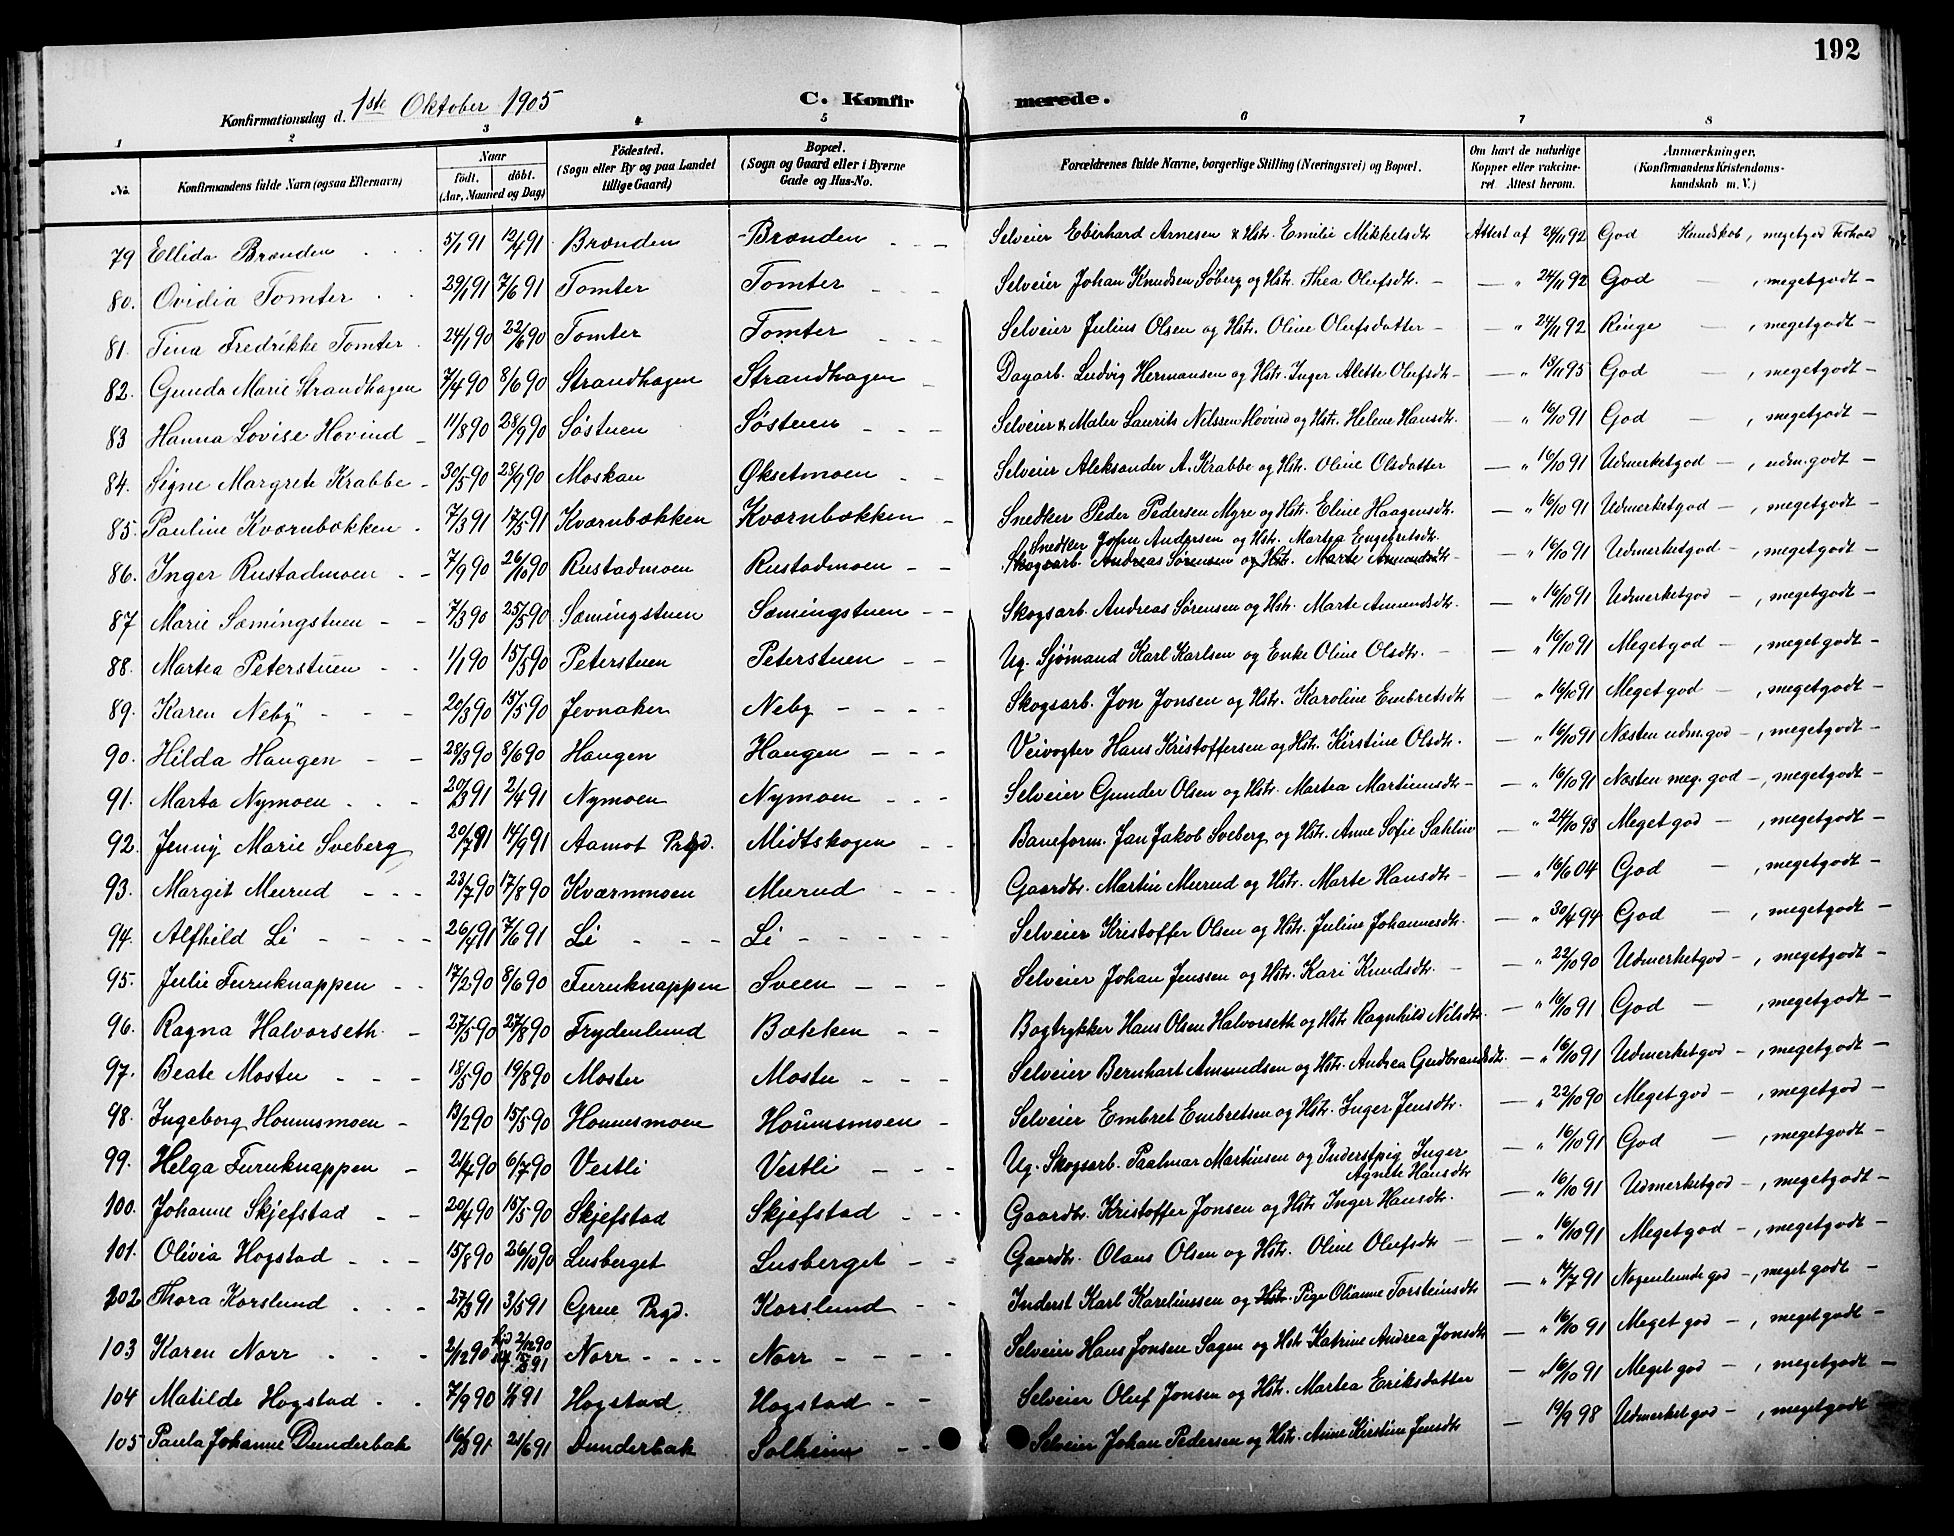 192
Konfirmationsdag d. 1ste Oktober 1905 C. Konfirmerede.
1 2 3 4 5 6 7 8
No. Konfirmandens fulde Navn (ogsaa Efternavn) Naar födt. döbt. (Aar, Maaned og Dag) Födested. (Sogn eller By og paa Landet tillige Gaard) Bopæl. (Sogn og Gaard eller i Byerne Gade og Hus-No. Forældrenes fulde Navne, borgerlige Stilling (Næringsvei) og Bopæl. Om havt de naturlige Kopper eller vakcineret. Attest herom. Anmærkninger, (Konfirmandens Kristendomskundskab m. V.)
79 Ellida Brænden 5/1 91 12/4 91 Brænden Brænden Selveier Eberhard Arnesen & Hstr. Emilie Mikkelsdtr Attest af 24/11 92 God Kundskab, megetgod Forhold
80. Ovidia Tomter 29/1 91 7/6 91 Tomter Tomter Selveier Johan Knudsen Søberg og Hstr. Thea Olufsdtr. — " 24/11 92 God — , megetgodt —
81. Tina Fredrikke Tomter 24/1 90 22/6 90 Tomter Tomter Selveier Julius Olsen og Hstr. Oline Olufsdatter — " 24/11 92 Ringe — , megetgodt —
82. Gunda Marie Strandhagen 7/4 90 8/6 90 Strandhagen Strandhagen Dagarb. Ludvig Hermansen og Hstr. Inger Alette Olufsdtr — " 18/11 95 God — , megetgodt —
83 Hanna Lovise Hovind 11/8 90 28/9 90 Søstuen Søstuen Selveier & Maler Laurits Nilssen Hovind og Hstr. Helene Hansdtr. — " 16/10 91 God — , megetgodt —
84. Signe Margrete Krabbe 30/5 90 28/9 90 Moskau Øksetmoen Selveier Aleksander A. Krabbe og Hstr. Oline Olsdatter — " 16/10 91 Udmerketgod — , udm.godt —
85. Pauline Kværnbækken 7/3 91 17/5 91 Kværnbækken Kværnbækken Snedker Peder Pedersen Myre og Hstr. Eline Haagensdtr. — " 16/10 91 Udmerketgod — , megetgodt —
Snedker John Andersen og Hstr. Martea Engebretsdtr.
86. Inger Rustadmoen 7/9 90 26/10 90 Rustadmoen Rustadmoen Skogsarb. Andreas Sørensen og Hstr. Marte Amundsdtr — " 16/10 91 Udmerketgod — , megetgodt —
87 Marie Sæmingstuen 7/3 90 25/5 90 Sæmingstuen Sæmingstuen Skogsarb. Andreas Sørensen og Hstr. Marte Amundsdtr. — " 16/10 91 Udmerketgod — , megetgodt —
88. Martea Peterstuen 1/1 90 15/5 90 Peterstuen Peterstuen Ug. Sjømand Karl Karlsen og Enke Oline Olsdtr. — " 16/10 91 Megetgod — , megetgodt —
89. Karen Neby 20/3 90 15/5 90 Jevnaker Neby Skogsarb. Jon Jonsen og Hstr. Karoline Embretsdtr — " 16/10 91 Meget god — , megetgodt —
90. Hilda Haugen 28/3 90 8/6 90 Haugen Haugen Veivogter Hans Kristoffersen og Hstr. Kirstine Olsdtr. — " 16/10 91 Næsten udm.god — , megetgodt —
91. Marta Nymoen 20/3 91 2/4 91 Nymoen Nymoen Selveier Gunder Olsen og Hstr. Martea Martinusdtr — " 16/10 91 Næsten meg. god — , megetgodt —
92. Jenny Marie Sveberg 20/7 91 14/9 91 Aamot Prgd. Midtskogen Baneform. Jan Jakob Sveberg og Hstr. Anne Sofie Sahlin — " 24/10 93 Meget god — , megetgodt —
93. Margit Murud 23/7 90 17/8 90 Kværnmoen Murud Gaardbr. Martin Murud og Hstr. Marte Hansdtr — " 16/6 04 God — , megetgodt —
94. Alfhild Li 26/4 91 7/6 91 Li Li Selveier Kristoffer Olsen og Hstr. Juline Johannesdtr. — " 30/4 94 God — , megetgodt —
95. Julie Furuknappen 17/2 90 8/6 90 Furuknappen Sveen Selveier Johan Jenssen og Hstr. Kari Knudsdtr. — " 22/10 90 Udmerketgod — , megetgodt —
96. Ragna Halvorseth 27/5 90 25/8 90 Frydenlund Bækken Bogtrykker Hans Olsen Halvorseth og Hstr Ragnhild Nilsdtr. — " 16/10 91 God — , megetgodt —
97. Beate Moster 18/5 90 19/8 90 Moster Moster Selveier Bernhart Amundsen og Hstr. Andrea Gudbrandsdtr. — " 16/10 91 Udmerketgod — , megetgodt —
98. Ingeborg Hommsmoen 13/2 90 15/5 90 Hommsmoen Hommsmoen Selveier Embret Embretsen og Hstr. Inger Jensdtr. — " 22/10 90 Megetgod — , megetgod —
99. Helga Furuknappen 21/4 90 6/7 90 Vestli Vestli Ug. Skogsarb. Paalmar Martinsen og Inderstpig Inger Agnete Hansdtr — " 16/10 91 God — , megetgodt —
100. Johanne Skjefstad 20/4 90 15/5 90 Skjefstad Skjefstad Gaardbr. Kristoffer Jonsen og Hstr. Inger Hansdtr. — " 16/10 91 Udmerketgod — , megetgodt —
101. Olivia Hogstad 15/8 90 26/10 90 Lusberget Lusberget Gaardbr. Olaus Olsen og Hstr. Oline Olufsdtr — " 16/10 91 Megetgod — , megetgodt —
102 Thora Korslund 27/3 91 3/5 91 Grue Prgd. Korslund Inderst Karl Karelinssen og Hstr. Pige Olianne Torsteinsdtr — " 17/7 91 Nogenlunde god — , meget godt —
103 Karen Norr 2/12 90 2/12 90 91 Norr Norr Selveier Hans Jonsen Sagen og Hstr Katrine Andrea Jonsdtr — " 16/10 91 Meget god — , megetgodt —
104 Matilde Hogstad 7/9 90 91 Hogstad Hogstad Selveier Oluf Jonsen og Hstr. Martea Eriksdatter — " 16/10 91 Meget god — , megetgodt —
105 Paula Johanne Dunderbak 16/3 91 21/6 91 Dunderbak Solheim Selveier Johan Pedersen og Hstr. Anne Kirstine Jensdtr — 19/9 98 Udmerketgod — , megetgodt —